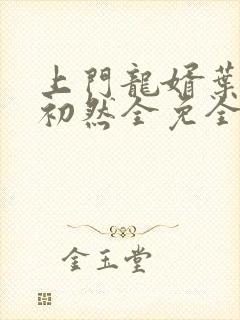 上門龍婿葉
初然全免全
金玉堂